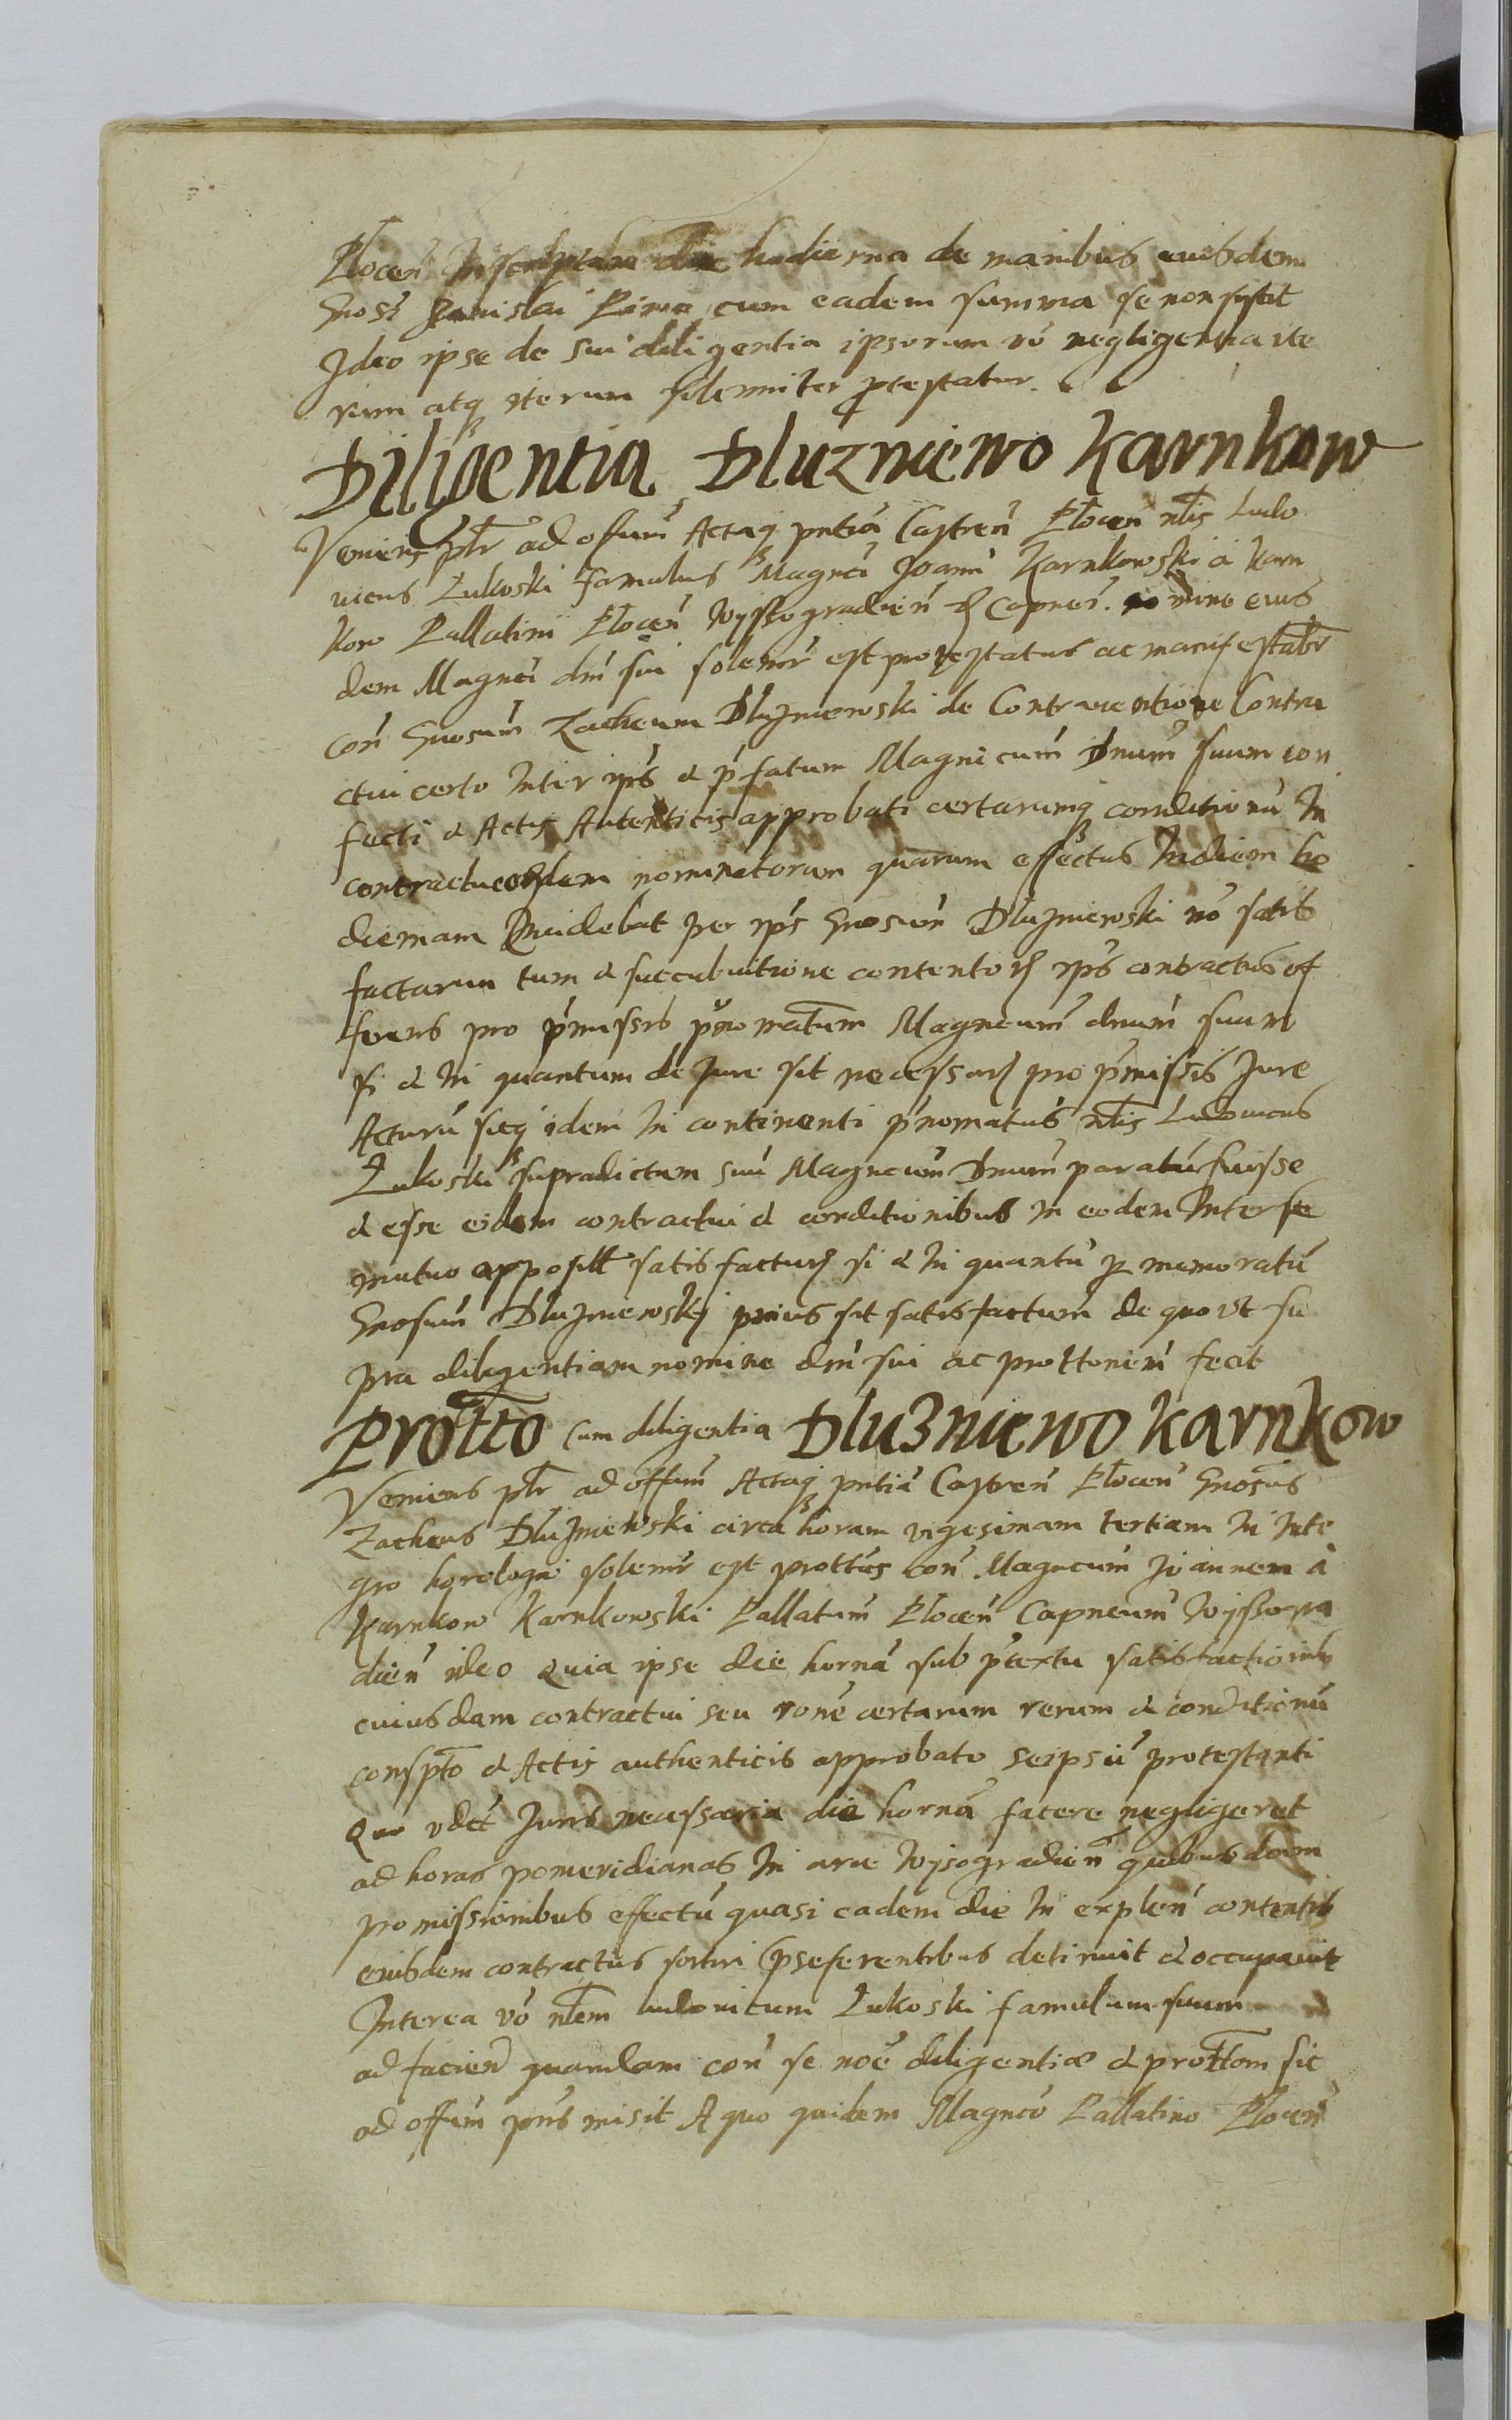 Plocen Inscriptam die hodierna de manibus eiusdem
Gnosi Stanislai Pirma cum eadem summa se non sistit
Ideo ipse de sui diligentia ipsorum vo negligentia ite
rum atq iterum solemniter ptestatur.
Diligentia Dluzniewo Karnkow
Veniens pltr ad offum Actaq pntia Castren Plocen nlis Ludo
uicus Lukoski famulus Magnci Joanni Karnkowski a Karn
kow Pallatini Plocen Wyssogradien & Capnei. nomine eius
dem Magnci dni sui solenr est protestatus ac manifestatr
con Gnosum Zacheum Dluzniewski de Contrauentione Contra
ctui certo Inter ips & pfatum Magnicum Dnum suum con
fecti & Actis Autenticis approbati certarumq conditionu In
contractu eodem nominatorum quarum effectus In diem ho
diernam Incidebat per ips Gnosum Dluzniewski no satis
factarum tum & succubuitione contentor ips contractus of
ferens pro pmissis pnomatum Magncum dnum suum
si & In quantum de Jure sit necessar pro pmissis Jure
Acturu sicq idem In continenti pnomatus nlis Ludouicus
Lukoski supradictum suu Magncum Dnum paratu fuisse
& esse eidem contractui & conditionibus in eodem Inter se
mutuo apposit satisfactur si & In quantu p memoratu
Gnosum Dluzniewskj prius sit satisfactum de quo vt su
pra diligentiam nomine dni sui ac prottonem fecit
Protto cum diligentia Dluzniewo Karnkow
Veniens pltr ad offum Actaq pntia Castren Plocen Gnosus
Zacheus Dluzniewski circa horam vigesimam tertiam In Inte
gro horologii solenr est prottus con Magncum Joannem a
Karnkow Karnkowski Pallatum Plocen Capneum Wyssogra
dien ideo Quia ipse die horna sub ptextu satisfactionis
cuiusdam contractui seu rone certarum rerum & conditionu
conspto & Actis authenticis approbato seipsu protestanti
Quo vdet Juris necessaria die horna facere negligeret
ad horas pomeridianas In arce Wysogradien quibusdam
promissionibus effectu quasi eadem die In explen contentis
eiusdem contractus sortiri pseferentibus detinuit & occupauit
Interea vo nlem ludouicum Lukoski famulum suum
ad facien quandam con se noe diligentia & prottom sic
ad offum pns misit A quo quidem Magnco Pallatino Plocen